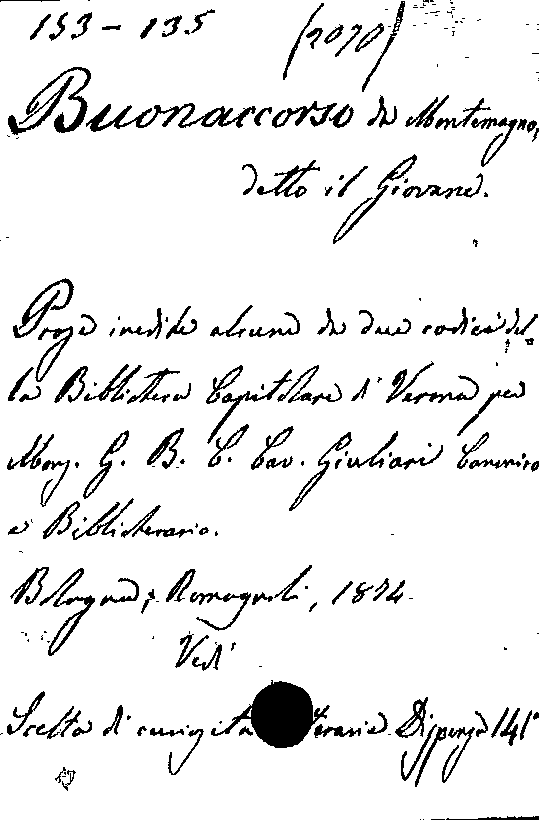 153-135 (2070)
Buonaccorso da Montemagno,
detto il Giovane.
Prose inedite alcune da due codici del
la Biblioteca Capitolare di Verona per
Mons. G. B. C. Cav. Giuliari Canonico
e Bibliotecario.
Bologna, Romagnoli, 1874
Vedi
Scelta di curiosità terarie Dispensa 141ª